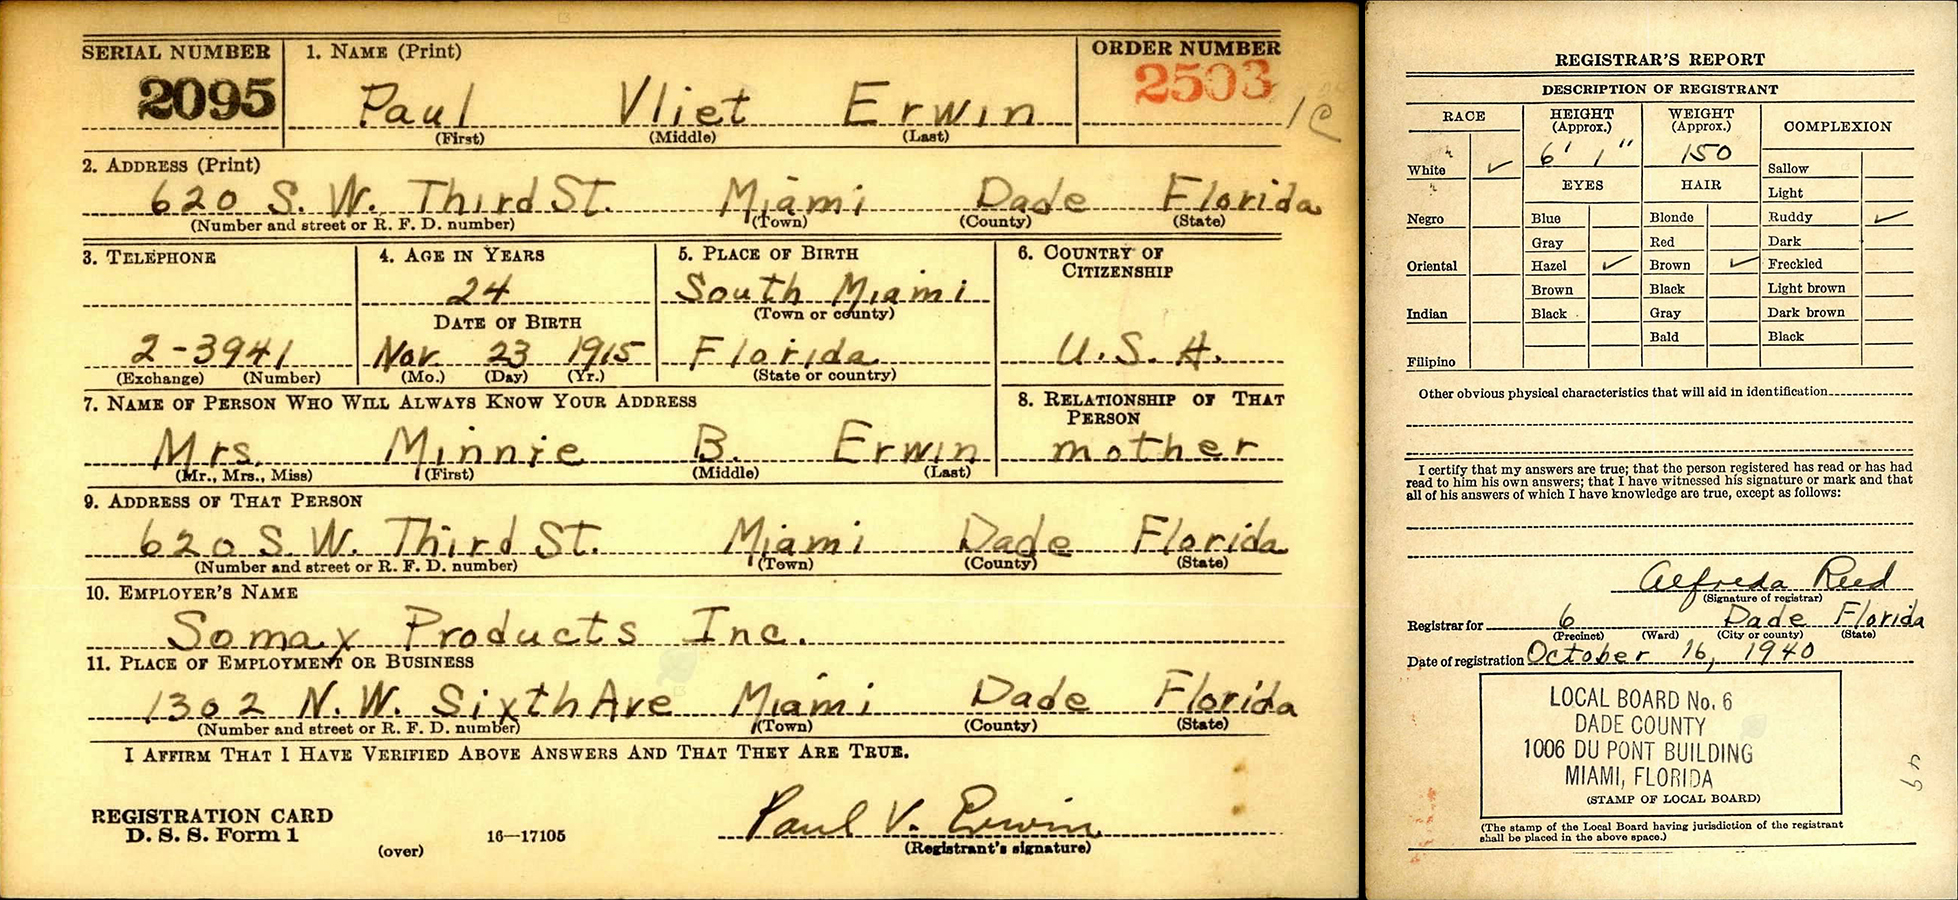 SERIAL NUMBER 1. NAME (Print) ORDER NUMBER
2095 Paul Vliet Erwin 2503 1C
(First) (Middle) (Last)
2. ADDRESS (Print)
620 S. W. Third St. Miami Dade Florida
(Number and street or R. F. D. number) (Town) (County) (State)
3. TELEPHONE 4. AGE IN YEARS 5. PLACE OF BIRTH 6. COUNTRY OF
CITIZENSHIP
24 South Miami
(Town or county)
DATE OF BIRTH
2-3941 Nov. 23 1915 Florida U.S.A.
(Exchange) (Number) (Mo.) (Day) (Yr.) (State or country)
7. NAME OF PERSON WHO WILL ALWAYS KNOW YOUR ADDRESS 8. RELATIONSHIP OF THAT
PERSON
Mrs. Minnie B. Erwin mother
(Mr., Mrs., Miss) (First) (Middle) (Last)
9. ADDRESS OF THAT PERSON
620 S. W. Third St. Miami Dade Florida
(Number and street or R. F. D. number) (Town) (County) (State)
10. EMPLOYER'S NAME
Somax Products Inc.
11. PLACE OF EMPLOYMENT OR BUSINESS
1302 N. W. Sixth Ave Miami Dade Florida
(Number and street or R. F. D. number) (Town) (County) (State)
I AFFIRM THAT I HAVE VERIFIED ABOVE ANSWERS AND THAT THEY ARE TRUE.
REGISTRATION CARD
D. S. S. Form 1 16—17105 Paul V. Erwin
(over) (Registrant's signature)
REGISTRAR'S REPORT
DESCRIPTION OF REGISTRANT
RACE HEIGHT WEIGHT COMPLEXION
(Approx.) (Approx.)
6' 1" 150
White ✓ Sallow
EYES HAIR Light
Negro Blue Blonde Ruddy ✓
Gray Red Dark
Oriental Hazel ✓ Brown ✓ Freckled
Brown Black Light brown
Indian Black Gray Dark brown
Bald Black
Filipino
Other obvious physical characteristics that will aid in identification
I certify that my answers are true; that the person registered has read or has had
read to him his own answers; that I have witnessed his signature or mark and that
all of his answers of which I have knowledge are true, except as follows:
Alfreda Reed
(Signature of registrar)
Registrar for 6 Dade Florida
(Precinct) (Ward) (City or county) (State)
Date of registration October 16, 1940
LOCAL BOARD No. 6
DADE COUNTY
1006 DU PONT BUILDING
MIAMI, FLORIDA
(STAMP OF LOCAL BOARD)
(The stamp of the Local Board having jurisdiction of the registrant
shall be placed in the above space.)